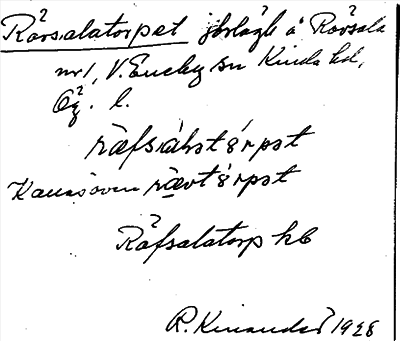 Råvsalatorpet jbrlägh å Råvsala
nr 1, V. Eneby sn Kinda hd,
Ög. l.
ræfsàlɑtórpət
Kanske även rævtórpət
Råfsalatorp kb
R. Kinander 1928